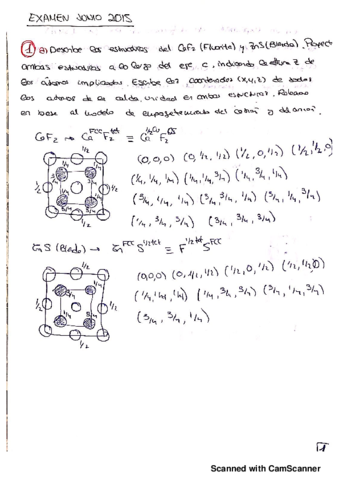 EXAMEN JUNIO 2015
1 a) Describe las estructuras del CaF2 (Fluorita) y ZnS (Blenda). Proyecta
ambas estructuras a lo largo del eje c, indicando la altura z de
los átomos implicados. Escribe las coordenadas (x,y,z) de todos
los átomos de la celda unidad en ambas estructuras.
en base al modelo de empaquetamiento del catión y del anión.
(0,0,0) (0,1/2,1/2) (1/2,0,1/2) (1/2,1/2,0)
(1/4,1/4,1/4) (1/4,1/4,3/4) (1/4,3/4,1/4)
(3/4,1/4,1/4) (3/4,3/4,1/4) (3/4,1/4,3/4)
(1/4,3/4,3/4) (3/4,3/4,3/4)
ZnS (Blenda) →
(0,0,0) (0,1/2,1/2) (1/2,0,1/2) (1/2,1/2,0)
(1/4,1/4,1/4) (1/4,3/4,3/4) (3/4,1/4,3/4)
(3/4,3/4,1/4)
1
Scanned with CamScanner